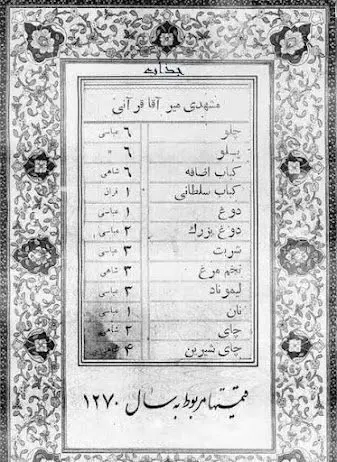 مشهدی میر آقا قرآنی
چلو ۶ عباسی
پلو ۶ "
کباب اضافه ۶ شاهی
کباب سلطانی ۱ قران
دوغ ۱ عباسی
دوغ بزرك ۲ عباسی
شربت ۳ عباسی
تخم مرغ ۳ شاهی
لیموناد ۳ عباسی
نان ۱ عباسی
چای ۲ شاهی
چای شیرین ۴ شاهی
قیمتها مربوط به سال ۱۲۷۰